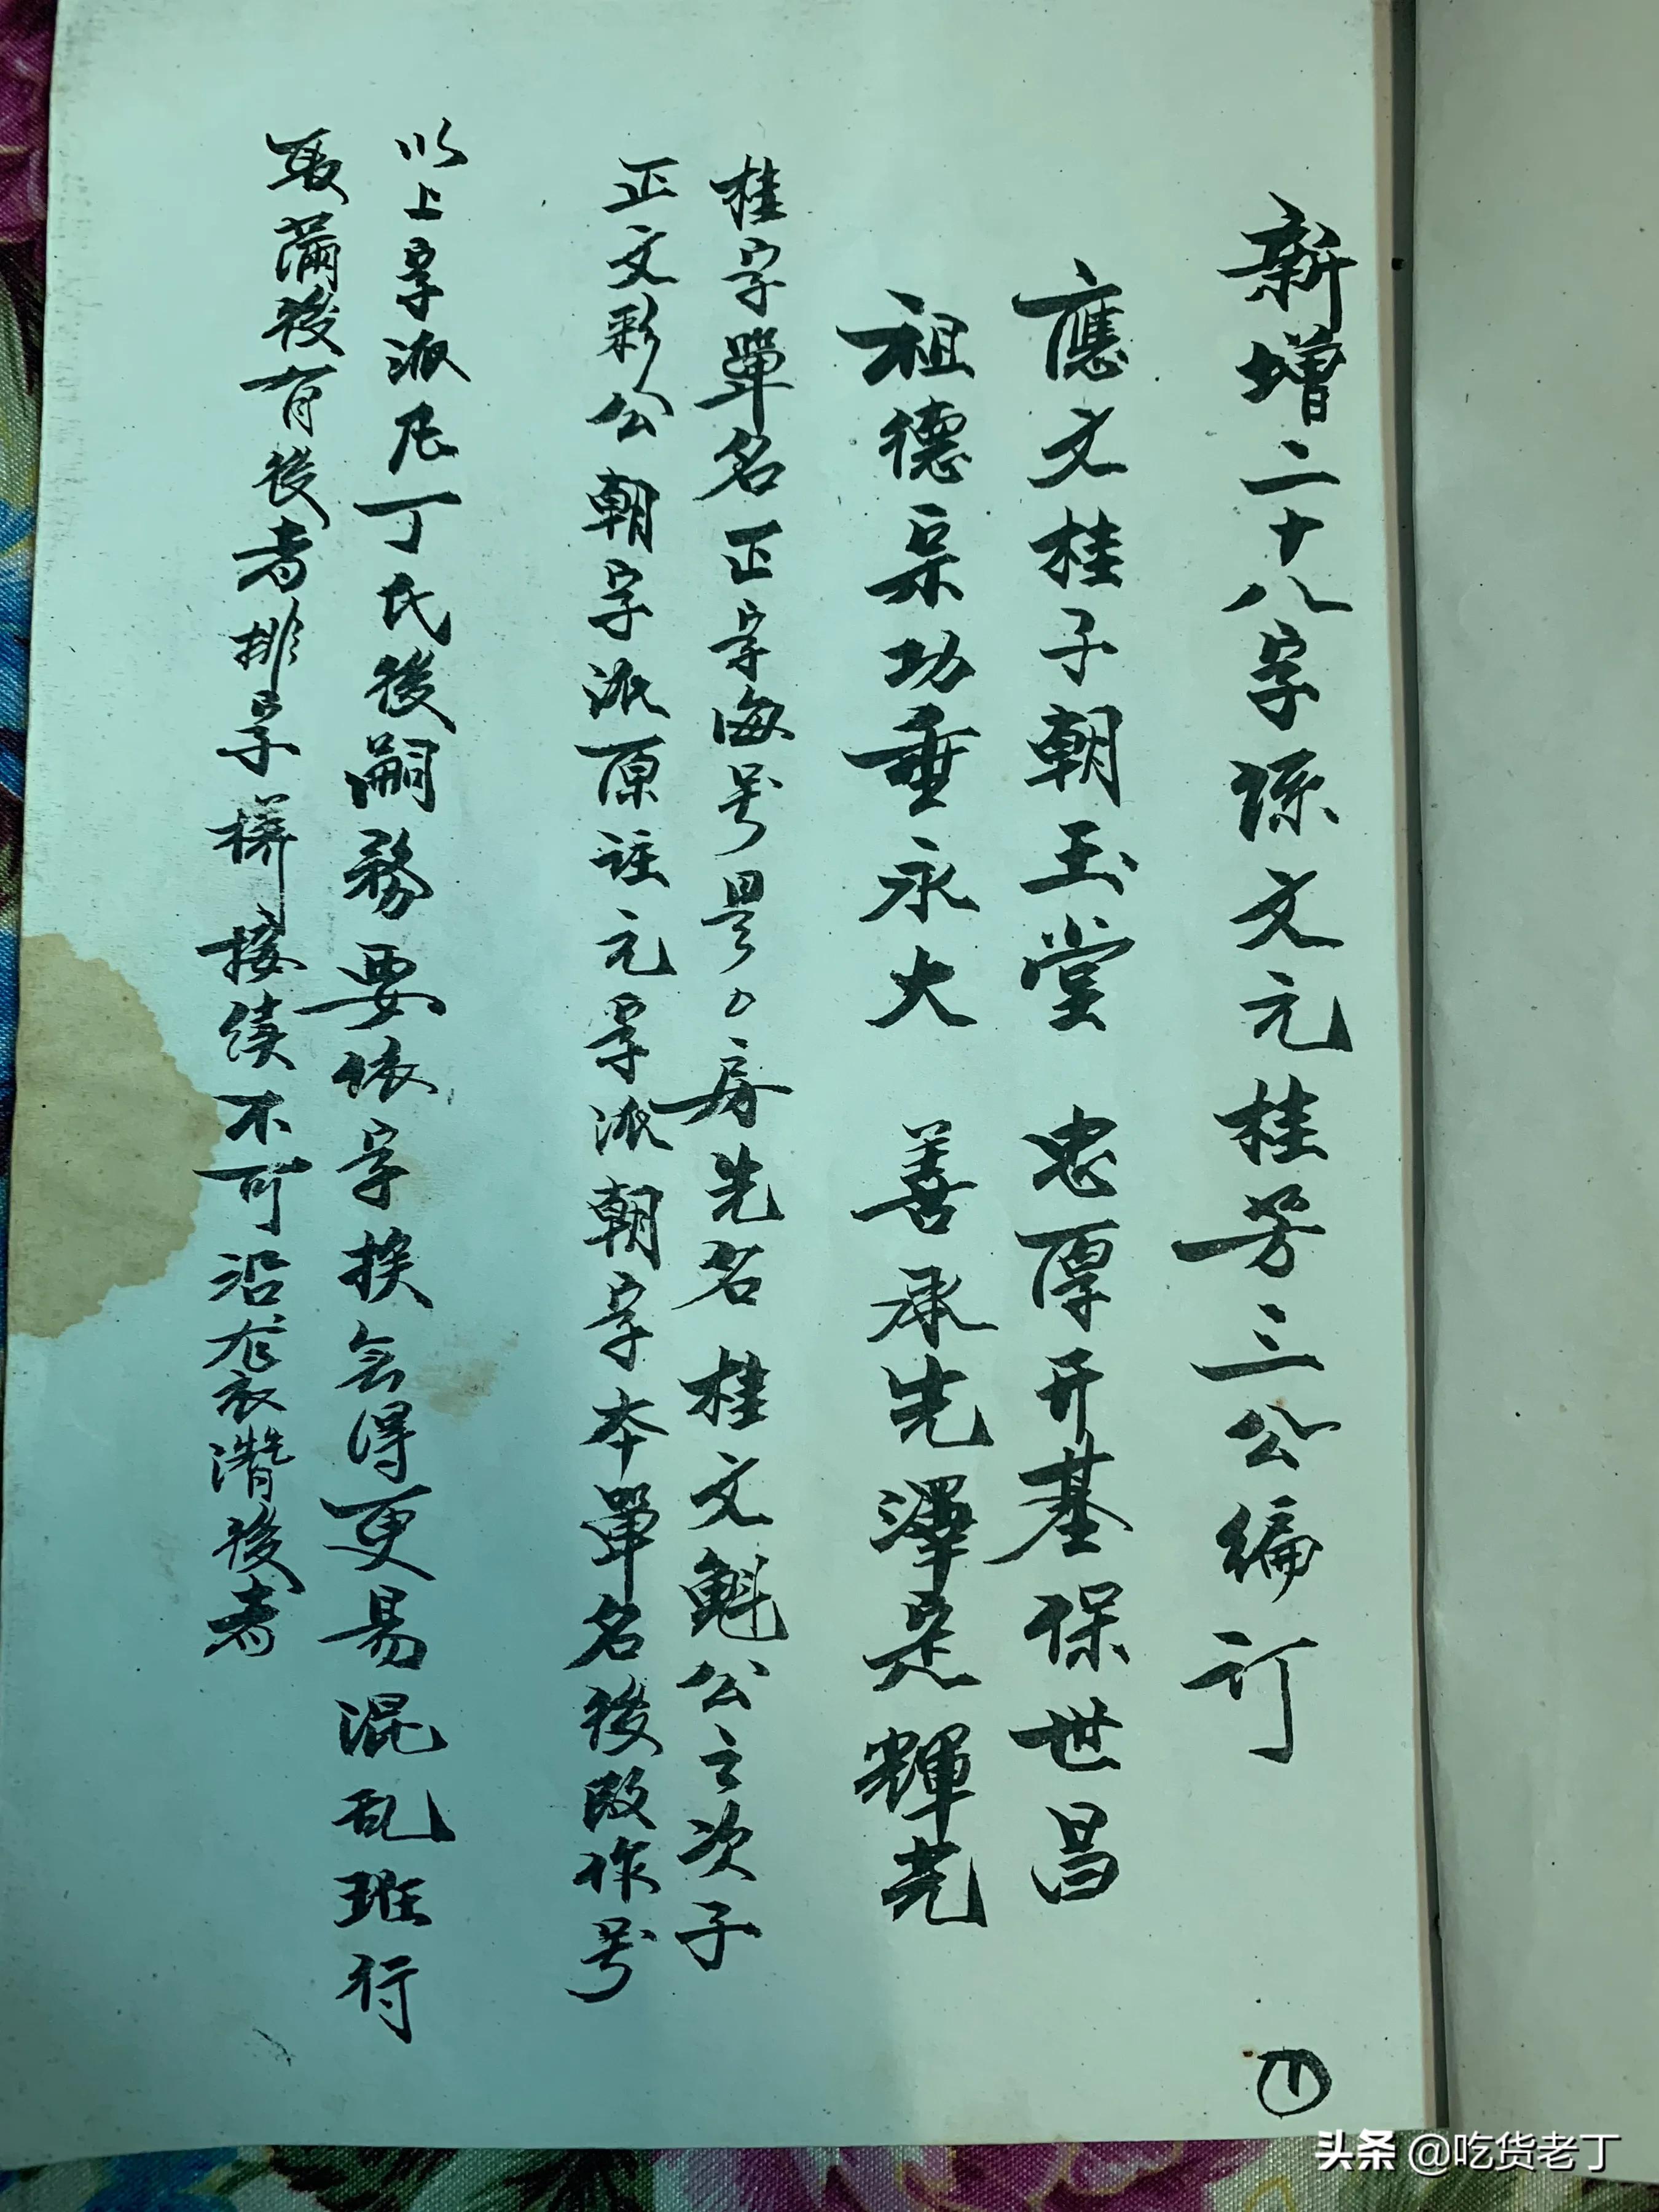 新增二十八字係文元桂芳三公編订
應文桂子朝玉堂 忠厚开基保世昌
祖德宗功垂永大 善承先澤定輝光
桂字單名正字海号景山房先名桂文魁公之次子
正文彩公朝字派原註元字派朝字本單名後改作号
以上字派凡丁氏後嗣務要依字挨会得更易混乱班行
取滿後有後者排字拼接续不可沿衣潛後者
11
头条 @吃货老丁